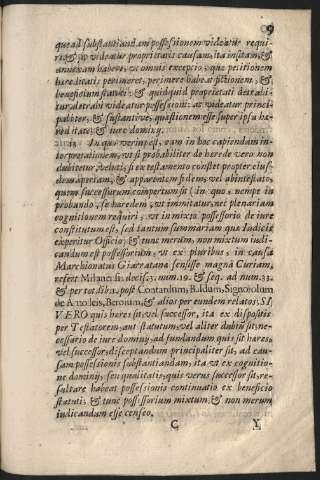 9
quæ ad substantiandam possessionem videatur requi-
ri; & videatur proprietati causam, ita insitam, &
annexam habere, ut omnis exceptio, quæ petitionem
hæreditati perimeret, perimere habeat petitionem, &
beneficium statuti; & quidquid proprietati detrabi-
tur, detrahi videatur possessioni: ac videatur princi-
paliter, & substantivè, quæstionem esse super ipsa hæ-
reditate, & iure dominij.
11 In quo verùm est, eam in hoc capiendam in-
terpretationem, ut si probabiliter de hærede vero non
dubitetur, veluti, si ex testamento constet propter eius-
dem aperitam, & apparentem fidem, vel ab intestato,
quem successurum compertum sit (in quo, nempe in
probando, se hæredem, ut innititur, nec plenariam
cognitionem requiri, ut in mixto possessorio de iure
constitutum est, sed tantum summariam quæ Iudicis
experitur Officio; & tunc merum, non mixtum iudi-
candum est possessorium, ut ex pluribus, in causa
Marchionatus Giarratana sensisse magnã Curiam,
refert Milanes. lib. decis. 3. num. 19. & seq. ad num. 33.
& per tot. lib. 2. post Contardum, Baldum, Signorolum
de Amoleis, Beroium, & alios per eundem relatos, SI
VERO quis hæres sit, vel successor, ita ex dispositis
per Testatorem, aut statutum, vel aliter dubiũ sit, ne-
cessariò de iure dominij, ad fundandum quis sit hæres,
vel successor, disceptandum principaliter sit, ad cau-
sam possessionis substantiandam, ita ut ex cognitio-
ne dominij, seu qualitatis, quis verus successor sit, re-
sultare habeat possessionis continuatio ex beneficio
statuti; & tunc possessorium mixtum, & non merum
iudicandum esse censeo.
C Y,